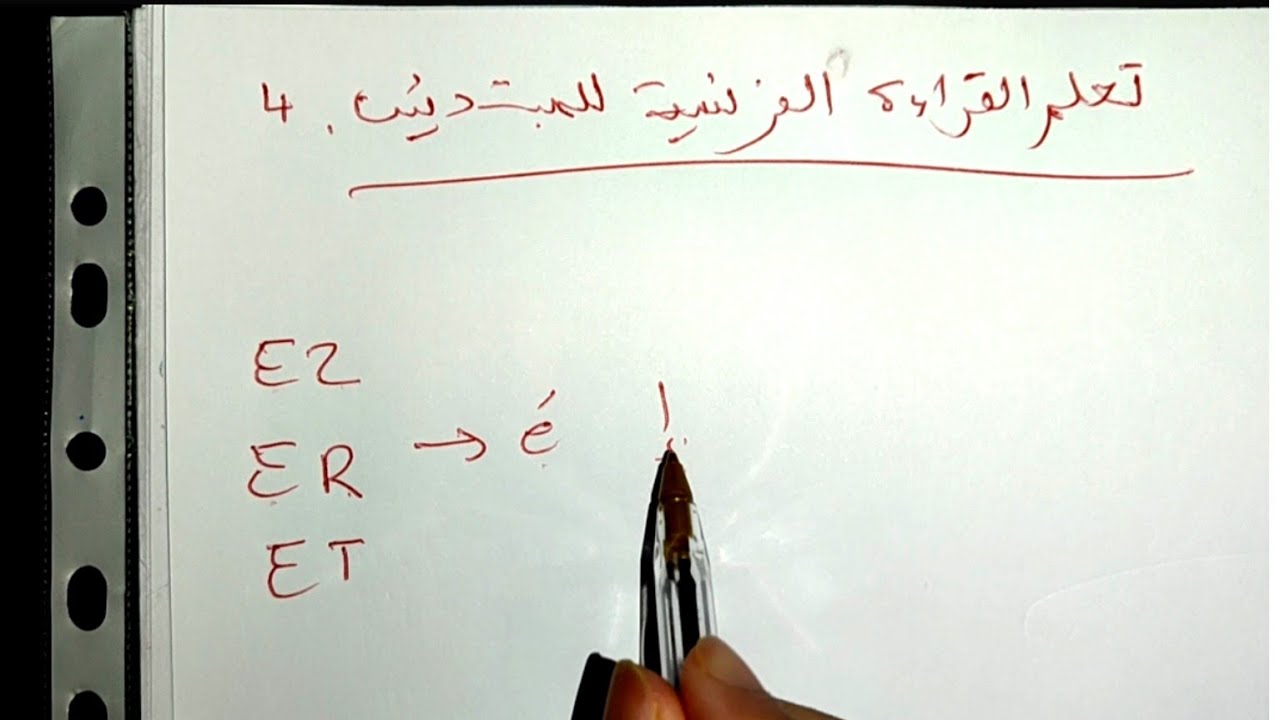 تعلم القراءة الفرنسية للمبتدئين . 4
EZ
ER → é إ
ET